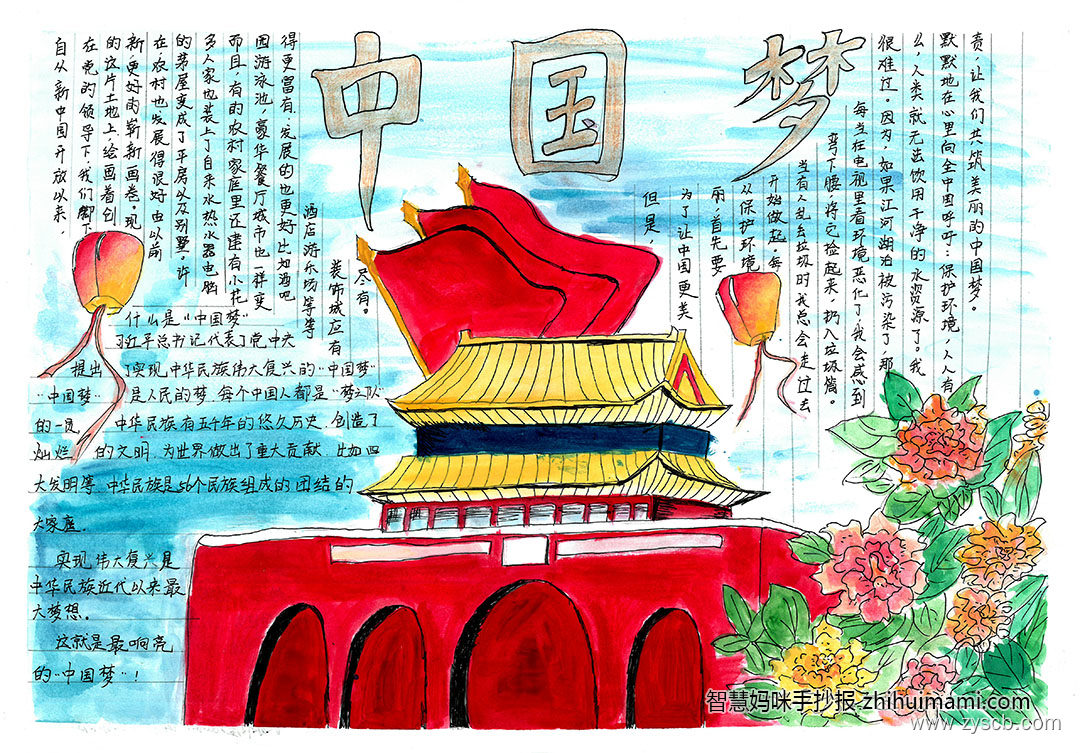 中国梦
自从新中国开放以来,
在党的领导下,我们脚下
的这片土地上,绘画着创
新、更好的崭新画卷。现
在,农村也发展得很好,由以前
的茅屋变成了平房以及别墅。许
多人家也装上了自来水热水器电脑
而且,有的农村家庭里还建有小花
园游泳池、豪华餐厅。城市也一样变
得更富有,发展的也更好比如酒吧
酒店游乐场等等
装饰城应有
尽有。
但是,
为了让中国更美
丽,首先要
从保护环境
开始做起。每
当有人乱去垃圾时我总会走过去
弯下腰将它捡起来,扔入垃圾篓。
每当在电视里看环境恶化了,我会感到
很难过。因为,如果江河湖泊被污染了,那
么,人类就无出饮用干净的水资源了。我
默默地在心里向全中国呼吁:保护环境,人人有
责,让我们共筑美丽的中国梦。
什么是“中国梦”
习近平总书记代表了党中央
提出了实现中华民族伟大复兴的“中国梦”
“中国梦”是人民的梦,每个中国人都是“梦之队”
的一员 中华民族有五千年的悠久历史,创造了
灿烂的文明,为世界做出了重大贡献,比如四
大发明等,中华民族是56个民族组成的团结的
大家庭.
实现伟大复兴是
中华民族近代以来最
大梦想。
这就是最响亮
的“中国梦”!
智慧妈咪手抄报-zhihuimami.com
www.zyscb.com